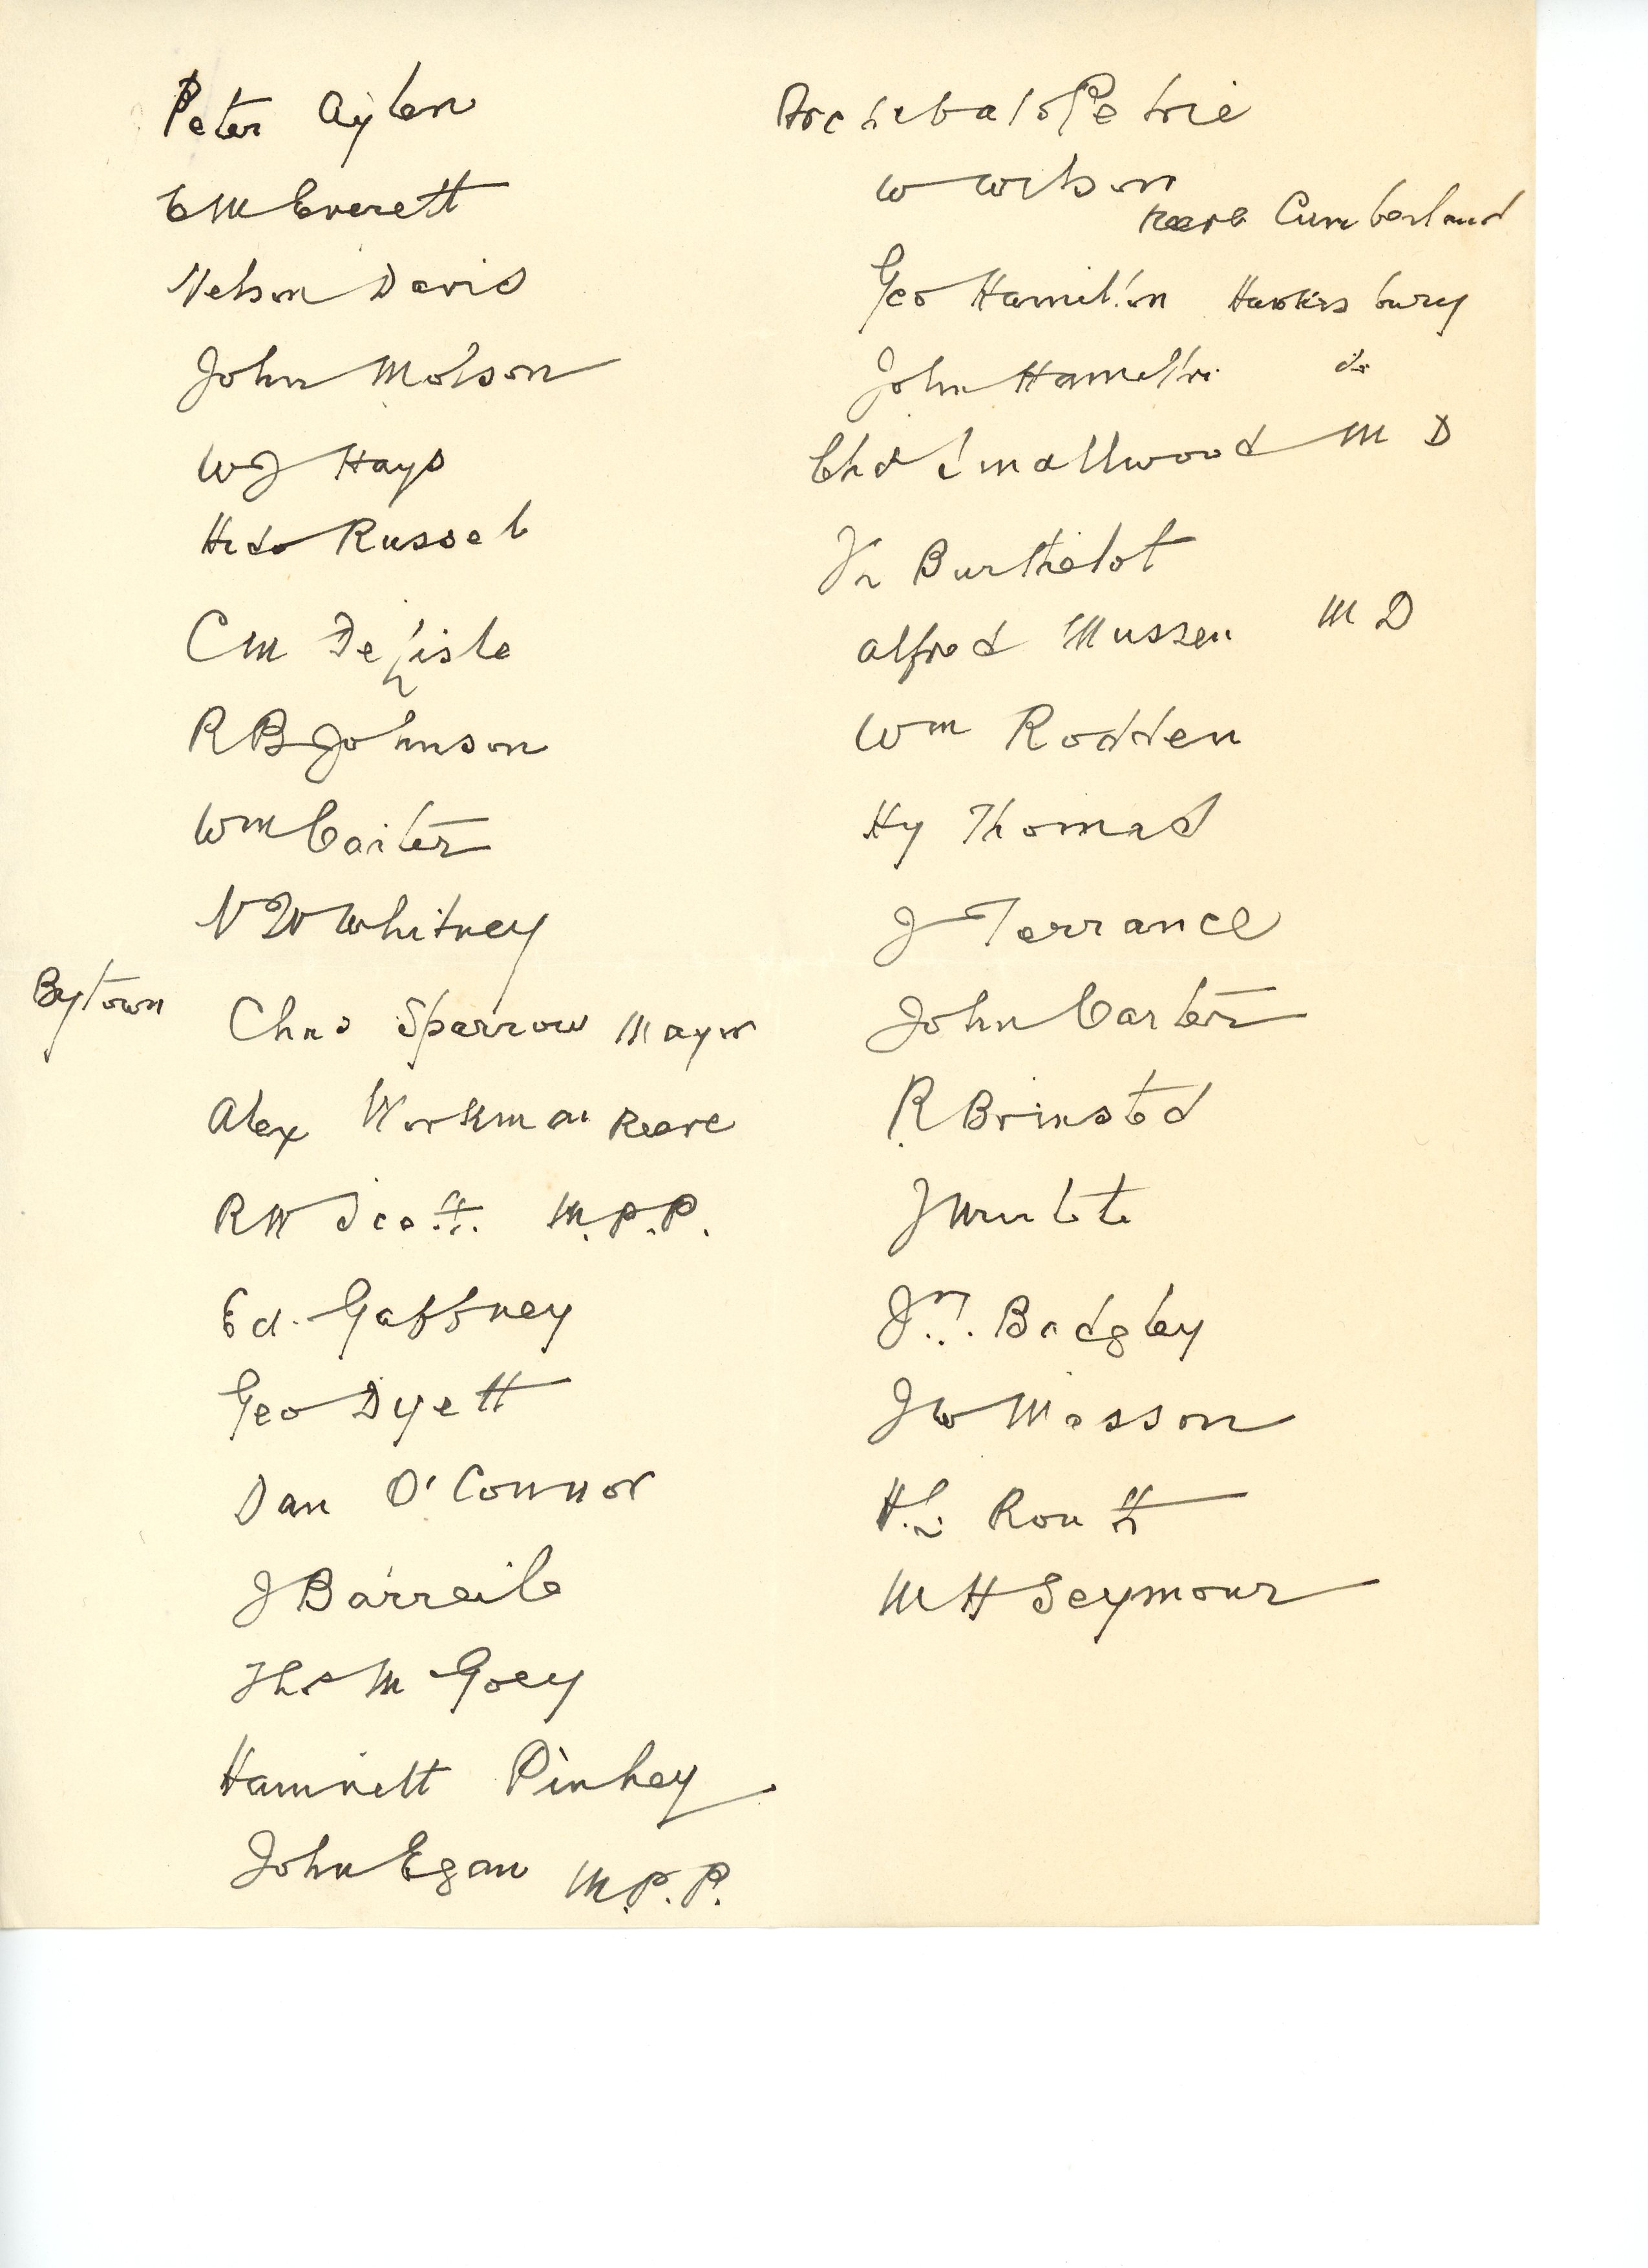 Peter Aylen
E M Everett
Nelson Davis
John Molson
W J Hays
Russel
C M DeLisle
R B Johnson
Wm Carter
N W Whitney
Bytown
Chas Sparrow Mayor
Alex Workman Reeve
R W Scott M.P.P.
Ed. Gaffney
Geo Dyett
Dan O'Connor
J Barreile
Thos M Goey
Hamnett Pinhey
John Egan M.P.P.
Archibald Petrie
W Wilson
Reeve Cumberland
Geo Hamilton Hawkesbury
John Hamilton do
Chs Smallwood M D
Burthelot
Alfred Mussen M D
Wm Rodden
Hy Thomas
J Torrance
John Carter
R Brinsted
J
Jn. Badgley
J W Masson
H. L. Routh
M H Seymour